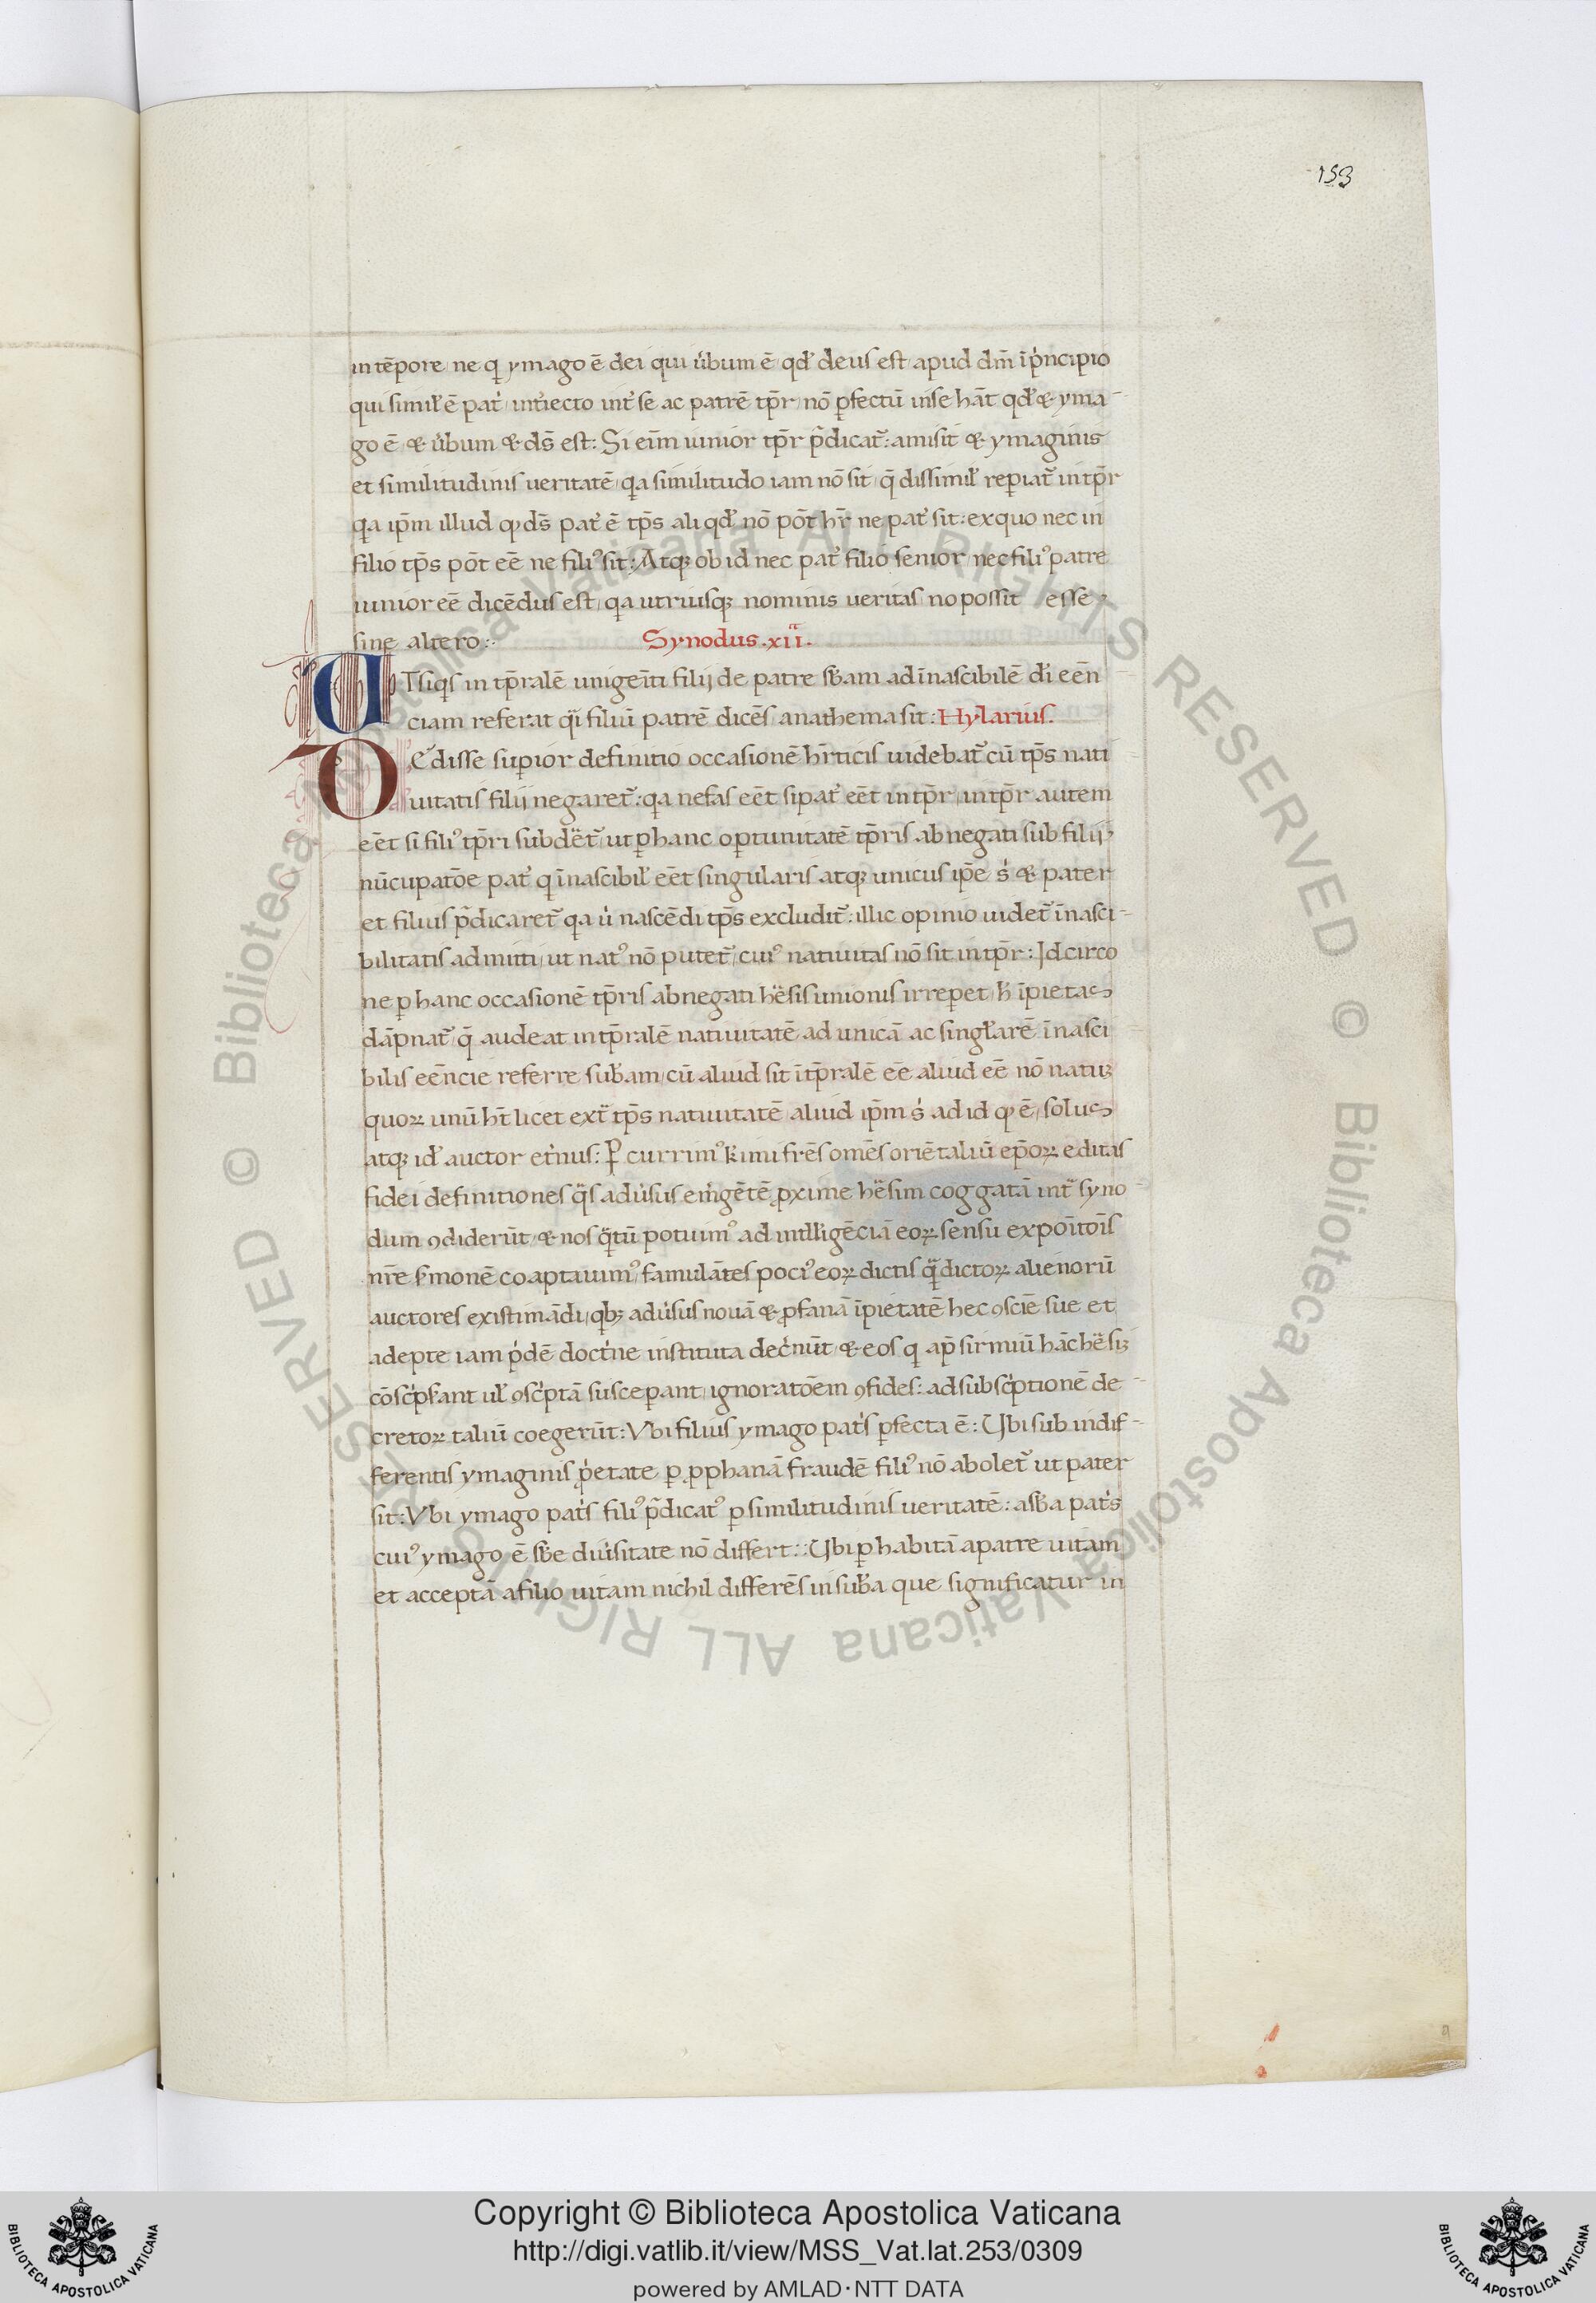 153
in tēpore ne q ymago ē dei qui u̇bum ē qd̕ deus est apud dm̄ ip̓ncipio
qui simil̕ ē pat̕ int̕iecto int̕ se ac patrē tp̄r nō ꝑfectū inse hāt qd̕ & yma-
go ē & u̇bum & ds̄ est: Si eīm iunior tp̄r p̄dicat̕: amisit & ymaginis
et similitudinis ueritatē qa similitudo iam nō sit q̄ dissimil̕ reꝑiat̕ in tp̄r
qa ip̄m illud ꝙ ds̄ pat̕ ē tp̄s ali qd̕ nō pōt hr̄ ne pat̕ sit: exquo nec in
filio tp̄s pōt eē ne filiꝰ sit: Atqꝫ ob id nec pat̕ filio senior nec filiꝰ patre
iunior eē dicēdus est qa utriusqꝫ nominis ueritas no possit esse
sine altero: Synodus .xii.
Tsiqs in tp̄ralē unigeīti filij de patre sb̄am ad īnascibilē d̓i eēn
ciam referat q̄i filiū patrē dicēs anathema sit: Hylarius.
DEdisse suꝑior definitio occasionē hr̄ticis uidebat̕ cū tp̄s nati
uitatis filij negaret̕: qa nefas eēt si pat̕ eēt in tp̄r in tp̄r autem
eēt si filiꝰ tp̄ri subdēt̕ ut ꝑ hanc oꝑtunitatē tp̄ris abnegati sub filij
nūcupatōe pat̕ q īnascibil̕ eēt singularis atqꝫ unicus ip̄e s̓ & pater
et filius p̄dicaret̕ qa u̇ nascēdi tp̄s excludit̕: illic opinio uidet̕ īnasci-
bilitatis admitti ut natꝰ nō putet̕ cuiꝰ natiuitas nō sit in tp̄r: Idcirco
ne ꝑ hanc occasionē tp̄ris abnegati hēsis unionis irreꝑet h̕ īpietas
dāpnat̕ q̄ audeat in tp̄ralē natiuitatē ad unicā ac singl̕arē īnasci
bilis eēncie referre sub̄am cū aliud sit ītp̄ralē eē aliud eē nō natuꝫ
quoꝝ unū ht̄ licet ext̄ tp̄s natiuitatē aliud ip̄m s̓ ad id ꝙ ē solus
atqꝫ id̕ auctor et̓nus: Ꝑcurrimꝰ k̄imi fr̄es omēs oriētaliū ep̄oꝝ editas
fidei definitiones q̄s adu̇sus em̓gētē ꝓxime hēsim coggatā int̄ syno-
dum ꝯdiderūt & nos q̄tū potuimꝰ ad intll̕igēciā eoꝝ sensu expoītōis
nr̄e s̕monē coaptauimꝰ famulātes pociꝰ eoꝝ dictis q̄ dictoꝝ alienorū
auctores existimādi qbꝫ adu̇sus nouā & ꝓfanā īpietatē hec ꝯsciē sue et
adepte iam p̓dē doct̓ne instituta dec̓nūt & eos q ap̄ sirmiū hāc hēsiꝫ
cōsc̓ps̕ant ul̕ ꝯsc̓ptā susceꝑant ignoratōem ꝯfides: ad subsc̓ptionē de-
cretoꝝ taliū coegerūt: Vbi filius ymago pat̓s ꝑfecta ē: Ubi sub indif-
ferentis ymaginis ꝓ̓etate ꝑ ꝓphanā fraudē filiꝰ nō abolet̕ ut pater
sit: Vbi ymago pat̓s filiꝰ p̄dicatꝰ ꝑ similitudinis ueritatē: asb̄a pat̓s
cuiꝰ ymago ē sb̄e diu̇sitate nō differt: Ubi ꝑ habitā apatre uitam
et acceptā afilio uitam nichil differēs in sub̄a que significatur in
Copyright © Biblioteca Apostolica Vaticana
http://digi.vatlib.it/view/MSS_Vat.lat.253/0309
powered by AMLAD·NTT DATA